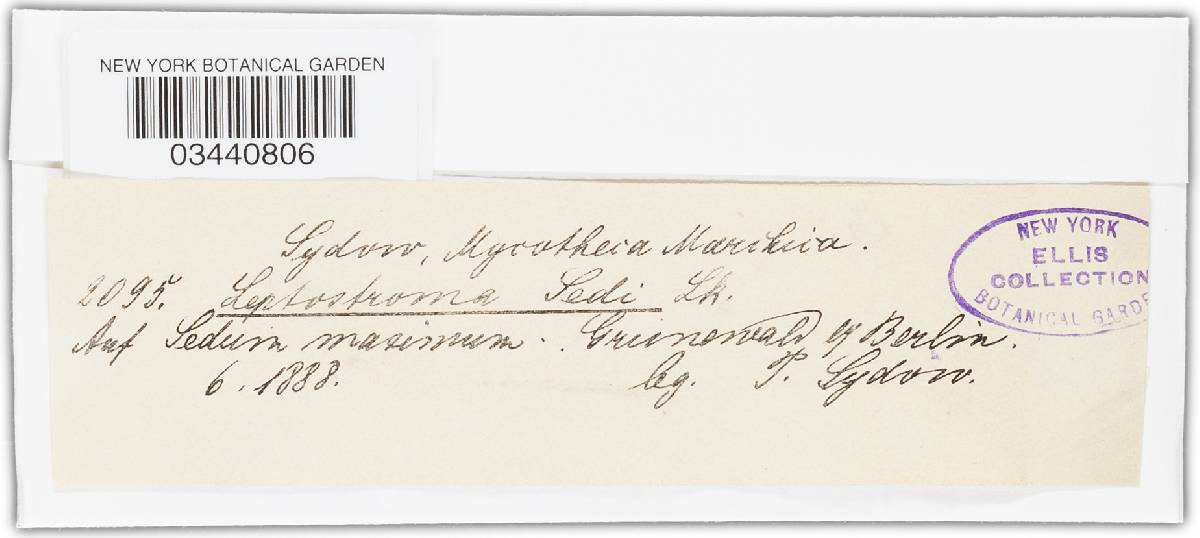 NEW YORK BOTANICAL GARDEN
03440806
Sydow, Mycotheca Marchica.
2095. Leptostroma Sedi Lk.
Auf Sedum maximum. Grunewald b/ Berlin.
6. 1888. leg. P. Sydow.
NEW YORK
ELLIS
COLLECTION
BOTANICAL GARDE